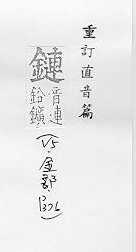 重訂直音篇
鏈
音連
鉛鑛
(V5.金部.B26)